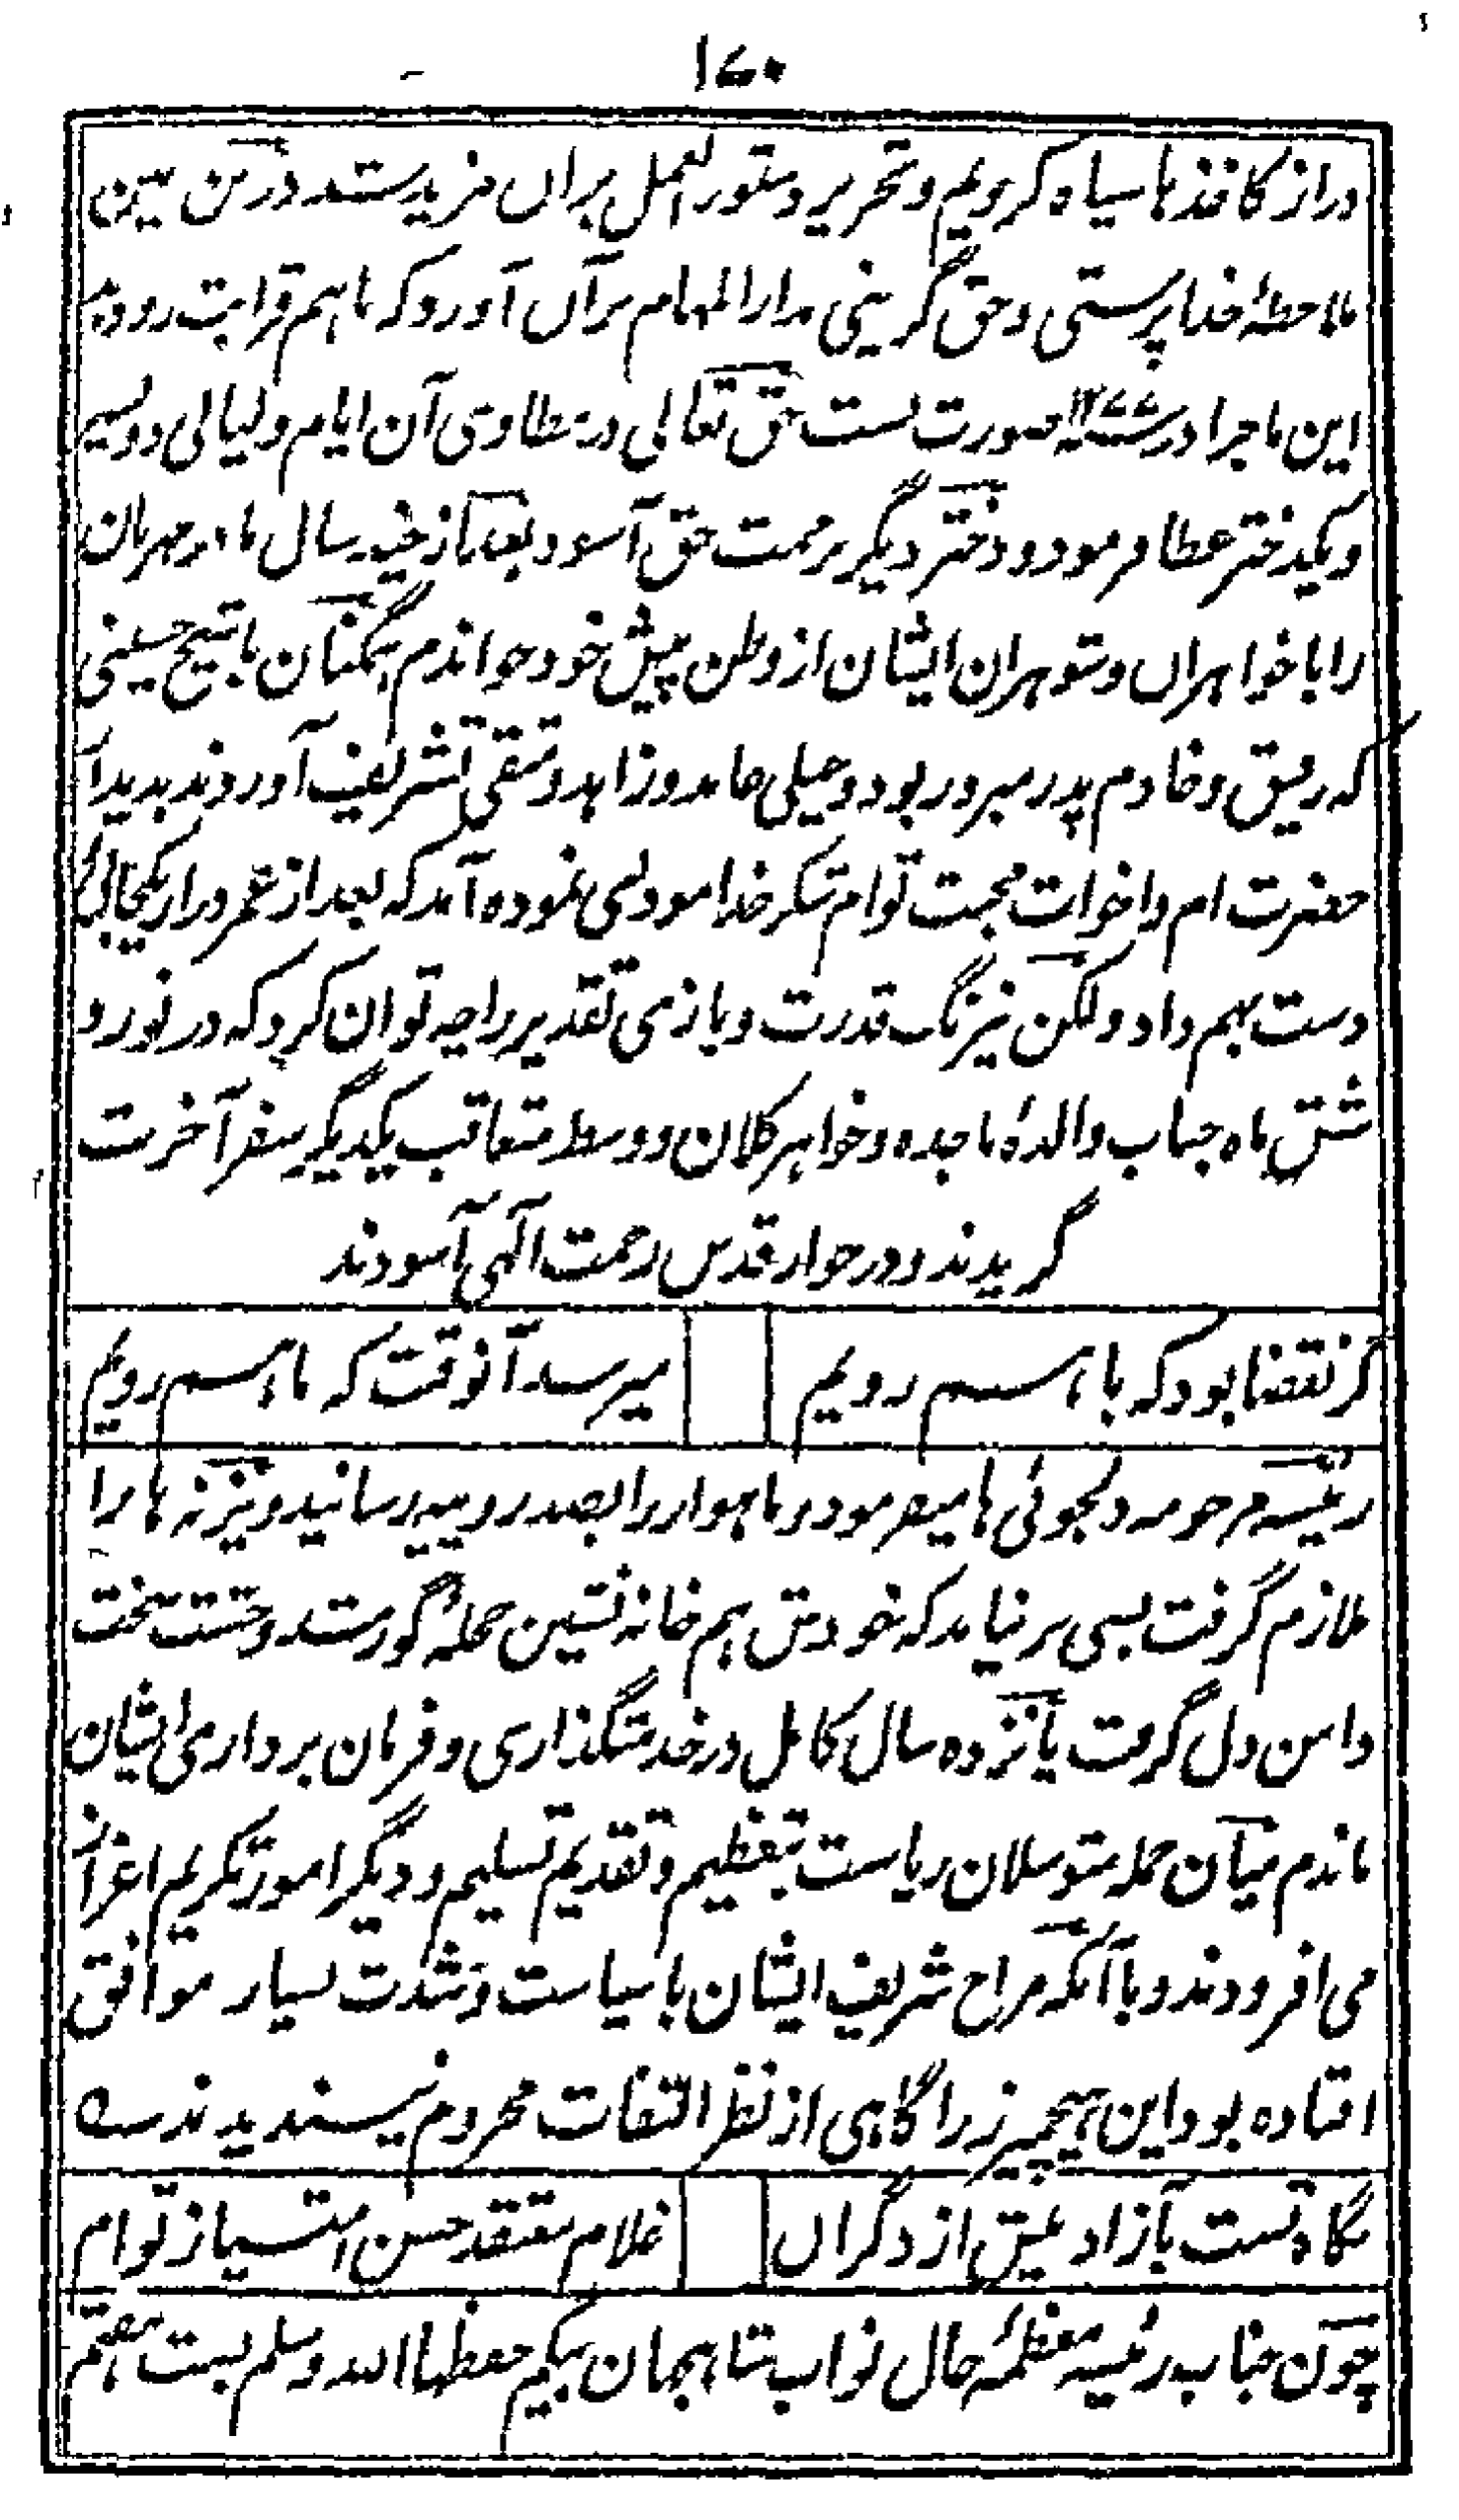 ۱۷۰
دراز کاغذها سیاه کردیم و تحریر دستور العمل بران مزید شد درین بین
ملاحظهٔ خدا پرستی و حق گزینی مدار المهام برآن آورد که باهم قرابت رو دهد
این ماجرا در ۱۲۷۷ صورت بست حق تعالی در مطاوی آن ایام و لیالی دو پسر
و یکدختر عطا فرمود و دختر دیگر برحمت حق آسود بعد از چند سال مادر مهربان
را با خواهران و شوهران ایشان از وطن پیش خود خواندم همگنان با شیخ حسینی
که رفیق و خادم پدر مبرور بود و خیلی عابد و زاهد و متقی تشریف آوردند بدیدار
حضرت ام و اخوات محبت توام شکر خدا مودی نموده آمد که بعد از عمر دراز یکجائی
دست بهم داد ولکن نیرنگ قدرت و بازی تقدیر را چه توان کرد که در نورد
شش ماه جناب والدهٔ ماجده و خواهر کلان و وسط متعاقب یکدیگر سفر آخرت
گزیدند و در جوار قدس رحمت آلهی آسودند
گر نقضا بود که باهم رویم
میرسد آنوقت که ماهم رویم
رئیسه مرحومه دلجوئی ها میفرمود و ماهوار را بصد روپیه رسانید و یزنه ها را
ملازم گرفت بسی بر نیامد که خودش هم خانه نشین محلهٔ گور شد وحشت سخت
دامن دل گرفت پانزده سال کامل در خدمتگذاری و فرمان برداری ایشان
ماندم میان جمله متوسلان ریاست بتعظیم و تقدیم تسلیم و دیگر امور تکریم اعزاز
می افزودند و با آنکه مزاج شریف ایشان با سیاست و شدت بسیار موافق
افتاده بود این هیچمیرز را گاهی از نظر التفات محروم نپسندیدند
نگاه تست بآزاد بیش از دگران
غلام معتقد حسن امتیاز توام
چون جناب رئیسه معظمهٔ حال نواب شاهجهان بیگم حفظها الله و سلم بست هفتم